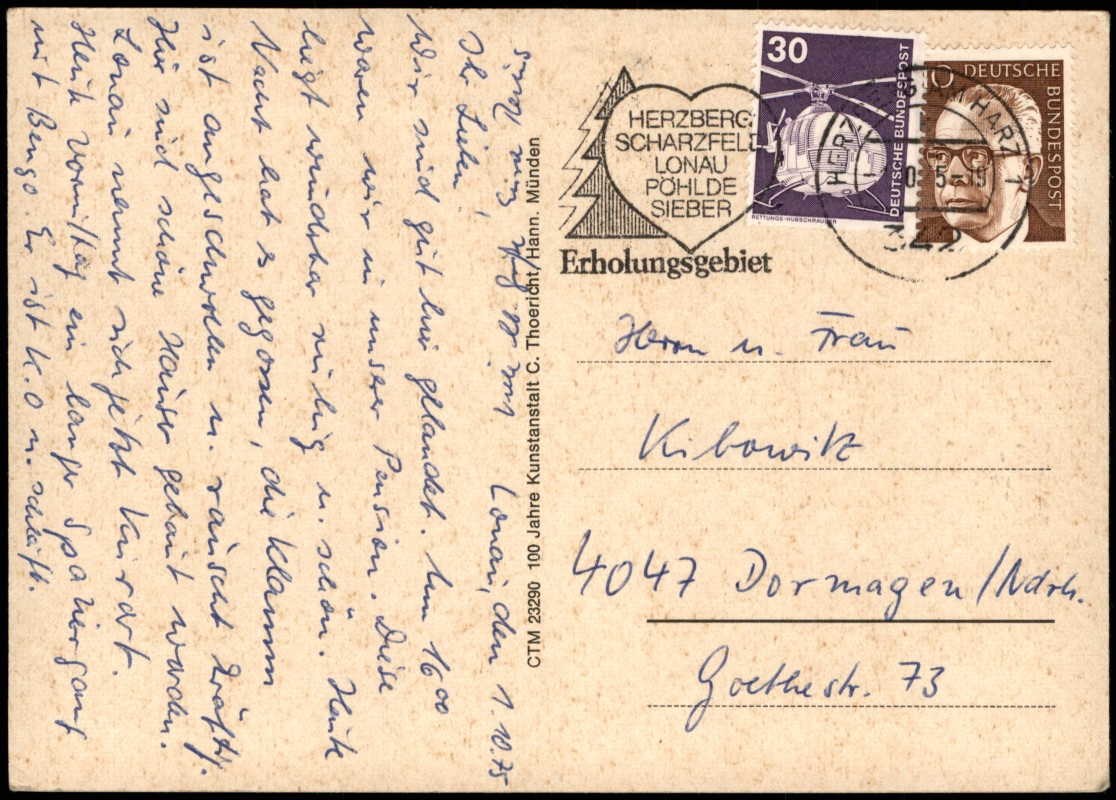 Lonau, den 1.10.75
Ihr Lieben!
Wir sind gut hier gelandet. Um 16 00
waren wir in unserer Pension. Diese
liegt wunderbar ruhig u. schön. Heute
Nacht hat es gegossen, die Klamm
ist angeschwollen u. rauscht kräftig.
Hier sind schöne Häuser gebaut worden.
Lonau nennt sich jetzt Kurort.
Heute Vormittag ein langer Spaziergang
mit Bengo. Er ist k.o u. schläft.
CTM 23290 100 Jahre Kunstanstalt C. Thoericht, Hann. Münden
HERZBERG
SCHARZFELD
LONAU
PÖHLDE
SIEBER
Erholungsgebiet
30
DEUTSCHE BUNDESPOST
RETTUNGS-HUBSCHRAUBER
DEUTSCHE
BUNDESPOST
AM HARZ 1
342
Herrn u. Frau
Kibowitz
4047 Dormagen/Ndrh.
Goethestr. 73